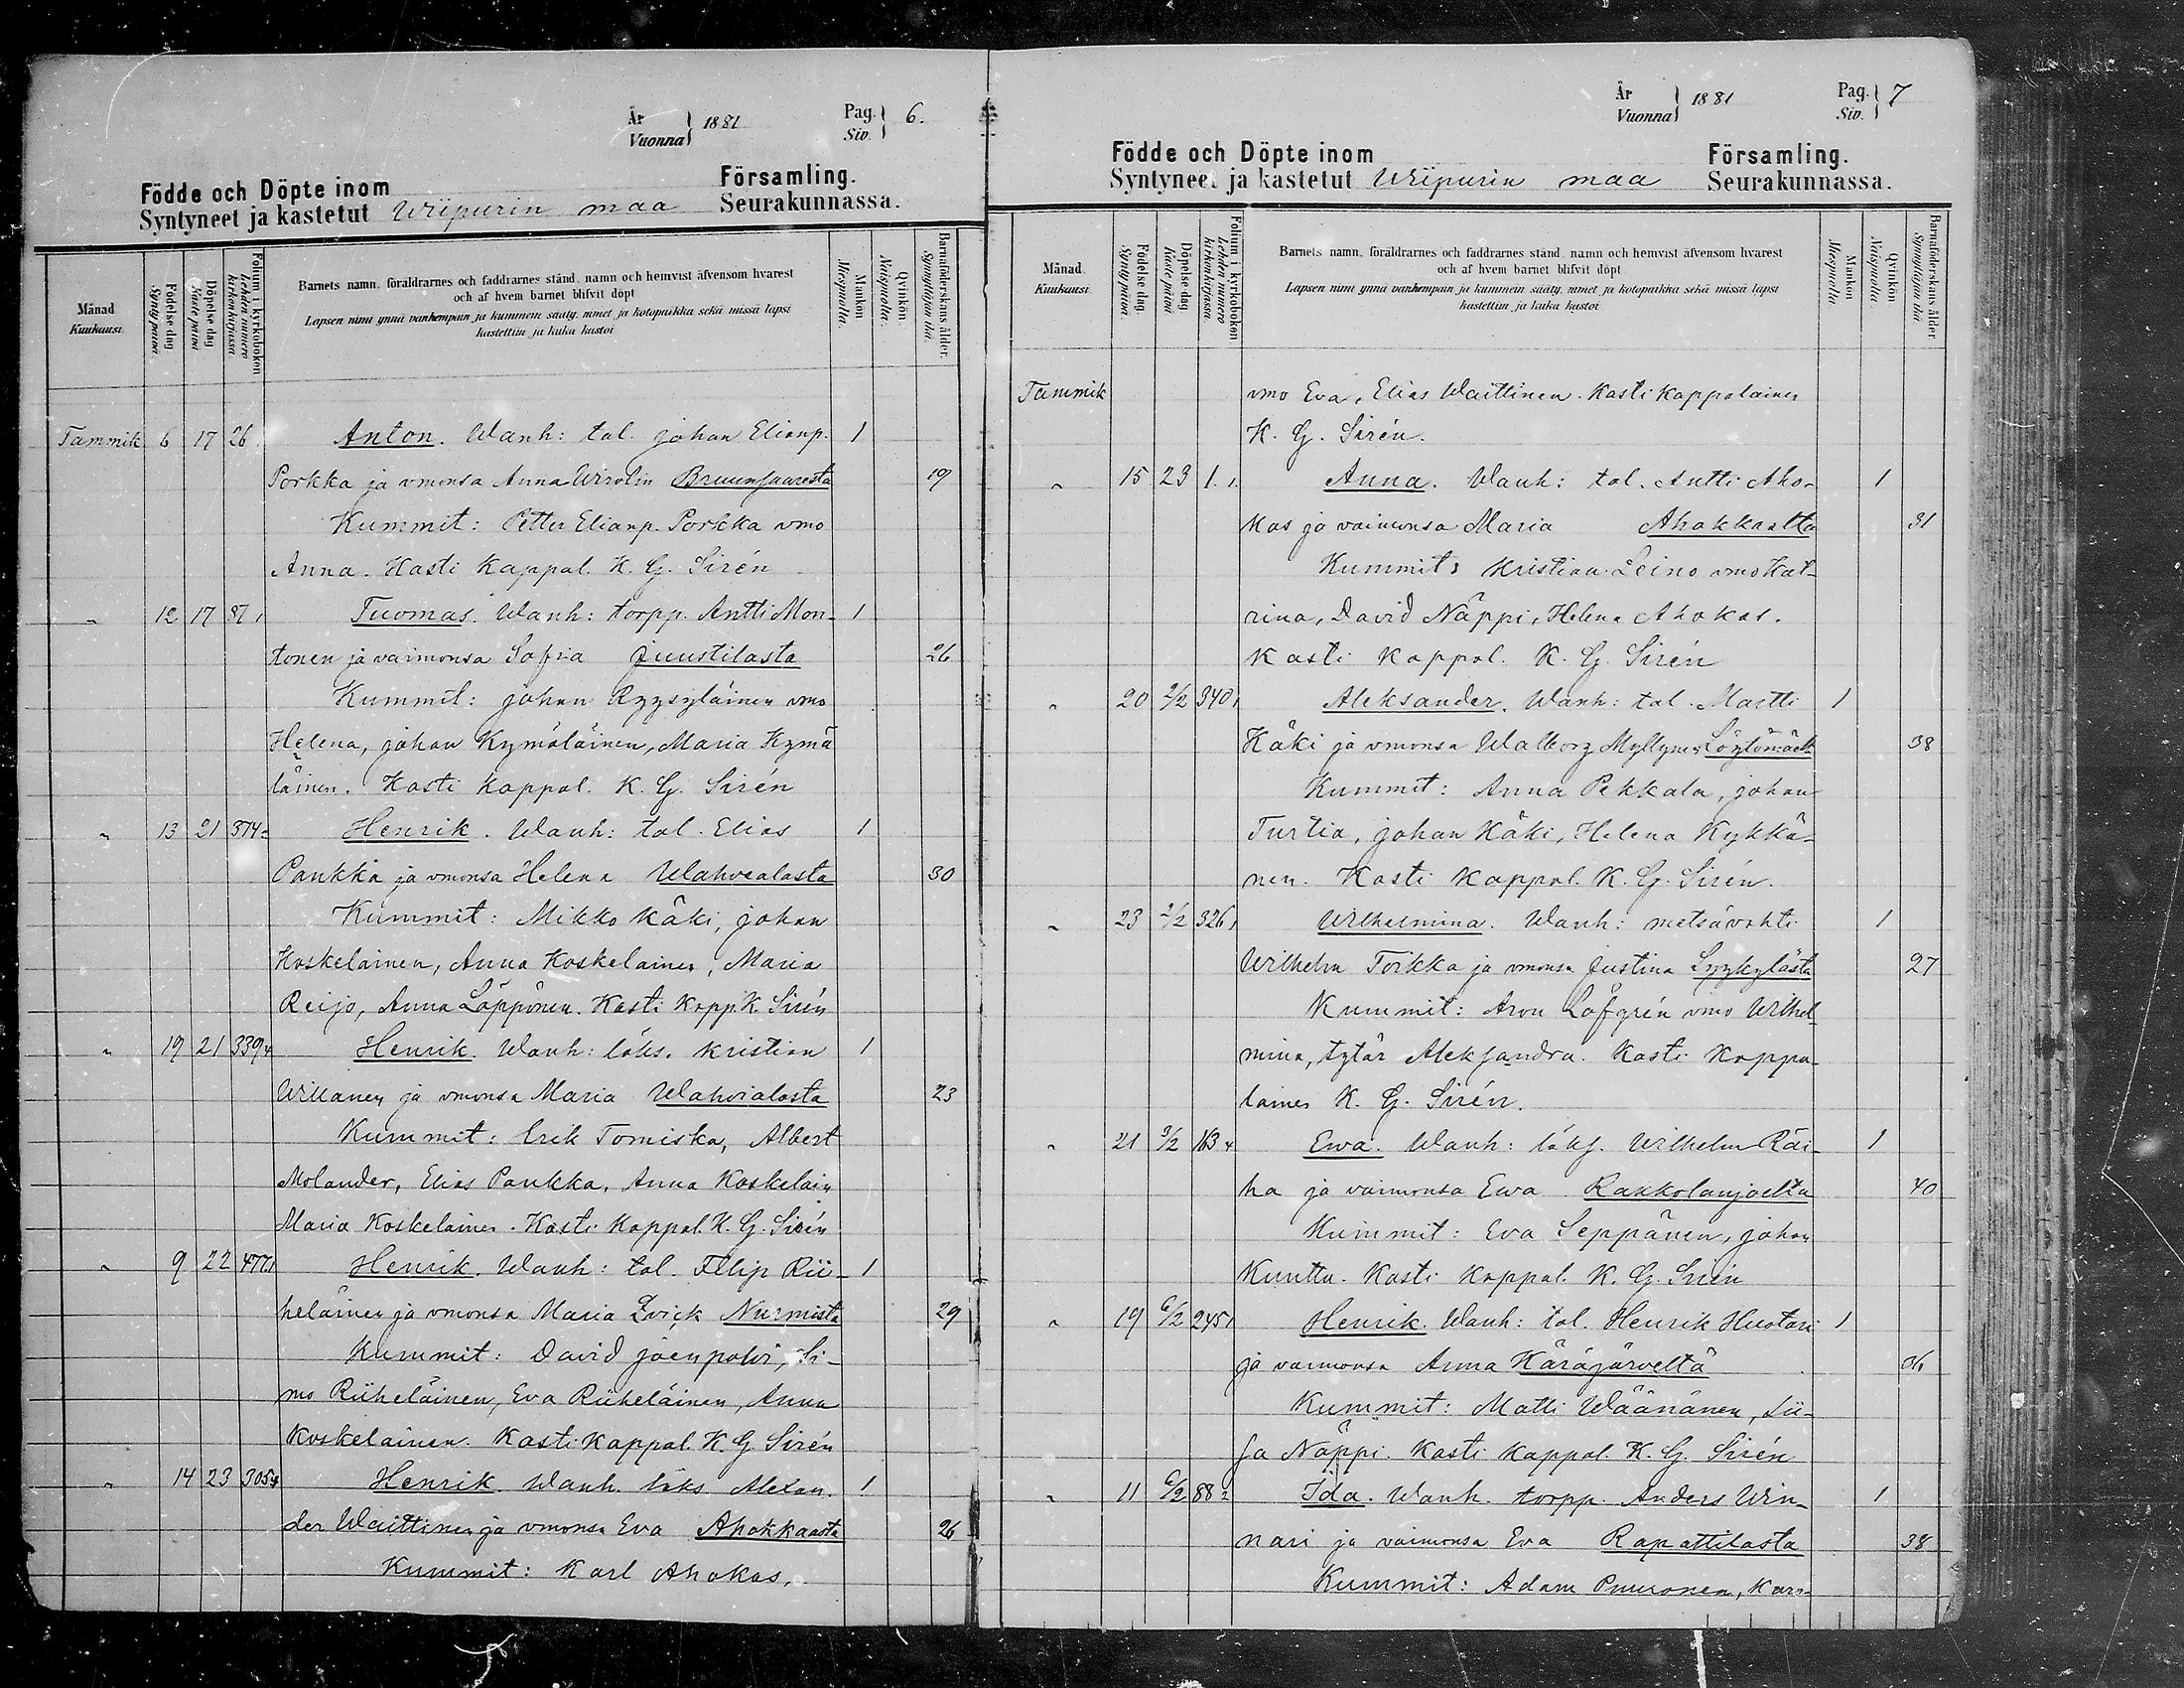 År
Vuonna 1881 Pag. Siv. 6.
Födde och Döpte inom Församling.
Syntyneet ja kastetut Wiipurin maa Seurakunnassa.
Månad Kuukausi.
Födelse dag Synty päivä
Döpelse dag Kaste päivä
Folium i kyrkoboken Lehden numero kirkonkirjassa
Barnets namn, föräldrarnes och faddrarnes stånd, namn och hemvist äfvensom hvarest
och af hvem barnet blifvit döpt
Lapsen nimi ynnä vanhempain ja kummein sääty, nimet ja kotopaikka sekä missä lapsi
kastettiin ja kuka kastoi
Mankön. Miespuolia.
Qvinkön. Naispuolia.
Barnaföderskans ålder. Synnyttäjän ikä.
Tammik 6 17 26 Anton. Wanh: tal. Johan Elianp. 1
Porkka ja vmonsa Anna Wirolin Bruunsaaresta 19
Kummit: Petter Elianp. Porkka vmo
Anna. Kasti Kappal. K. G. Sirén
" 12 17 87, Tuomas. Wanh: torpp. Antti Mon- 1
tonen ja vaimonsa Sofia Juustilasta 26
Kummit: Johan Ryysyläinen vmo
Helena, Johan Kymäläinen, Maria Kymä
läinen. Kasti Kappal. K. G. Sirén
" 13 21 374 Henrik. Wanh: tal. Elias 1
Paukka ja vmonsa Helena Wahvialasta 30
Kummit: Mikko Käki, Johan
Koskelainen, Anna Koskelainen, Maria
Reijo, Anna Läppönen. Kasti Kapp. K. Sirén
" 19 21 339 4 Henrik. Wanh: löks. Kristian 1
Willanen ja vmonsa Maria Wahvialasta 23
Kummit: Erik Tomiska, Albert
Molander, Elias Paukka, Anna Koskelain
Maria Koskelainen. Kasti Kappal. K. G. Sirén
" 9 22 477 Henrik. Wanh: tal. Filip Rii- 1
heläinen ja vmonsa Maria Zvick Nurmista 29
Kummit: David Joenpolvi, Si-
mo Riiheläinen, Eva Riiheläinen, Anna
Koskelainen. Kasti Kappal. K. G. Sirén
" 14 23 305 Henrik. Wanh. löks. Alexan- 1
der Waittinen ja vmonsa Eva Ahokkaasta 26
Kummit: Karl Ahokas,
År
Vuonna 1881 Pag. Siv. 7
Födde och Döpte inom Församling.
Syntyneet ja kastetut Wiipurin maa Seurakunnassa.
Månad Kuukausi.
Födelse dag. Synty päivä.
Döpelse dag Kaste päivä
Folium i kyrkoboken Lehden numero kirkonkirjassa.
Barnets namn, föräldrarnes och faddrarnes stånd, namn och hemvist äfvensom hvarest
och af hvem barnet blifvit döpt
Lapsen nimi ynnä vanhempain ja kummein sääty, nimet ja kotopaikka sekä missä lapsi
kastettiin ja kuka kastoi
Mankön Miespuolia
Qvinkön Naispuolia.
Barnaföderskans ålder Synnyttäjän ikä
Tammik vmo Eva, Elias Waittinen. Kasti Kappalainen
K. G. Sirén.
" 15 23 1. 1. Anna. Wanh: tal. Antti Aho- 1
kas ja vaimonsa Maria Ahokkaalta 31
Kummit: Kristian Leino vmo Kat-
rina, David Näppi, Helena Ahokas.
Kasti Kappal. K. G. Sirén
" 20 2/2 340, Aleksander. Wanh: tal. Martti 1
Käki ja vmonsa Walborg Myllynen Löytömäek 38
Kummit: Anna Pekkala, Johan
Turtia, Johan Käki, Helena Kykkä-
nen. Kasti Kappal. K. G. Sirén.
" 23 2/2 326, Wilhelmina. Wanh: metsävahti 1
Wilhelm Toikka ja vmonsa Justina Lyykylästä 27
Kummit: Aron Löfgrén vmo Wilhel-
mina, tytär Aleksandra. Kasti Kappa-
lainen K. G. Sirén.
" 21 3/2 163 4 Ewa. Wanh: löks. Wilhelm Räi- 1
hä ja vaimonsa Ewa Rakkolanjoelta 40
Kummit: Eva Seppänen, Johan
Kunttu. Kasti Kappal. K. G. Sirén
" 19 6/2 245, Henrik. Wanh: tal. Henrik Huotari 1
ja vaimonsa Anna Käräjärveltä
Kummit: Matti Wäänänen, Lii-
sa Näppi. Kasti Kappal. K. G. Sirén
" 11 6/2 88 2 Ida. Wanh. torpp. Anders Win- 1
nari ja vaimonsa Eva Rapattilasta 38
Kummit: Adam Puuronen, Kars-